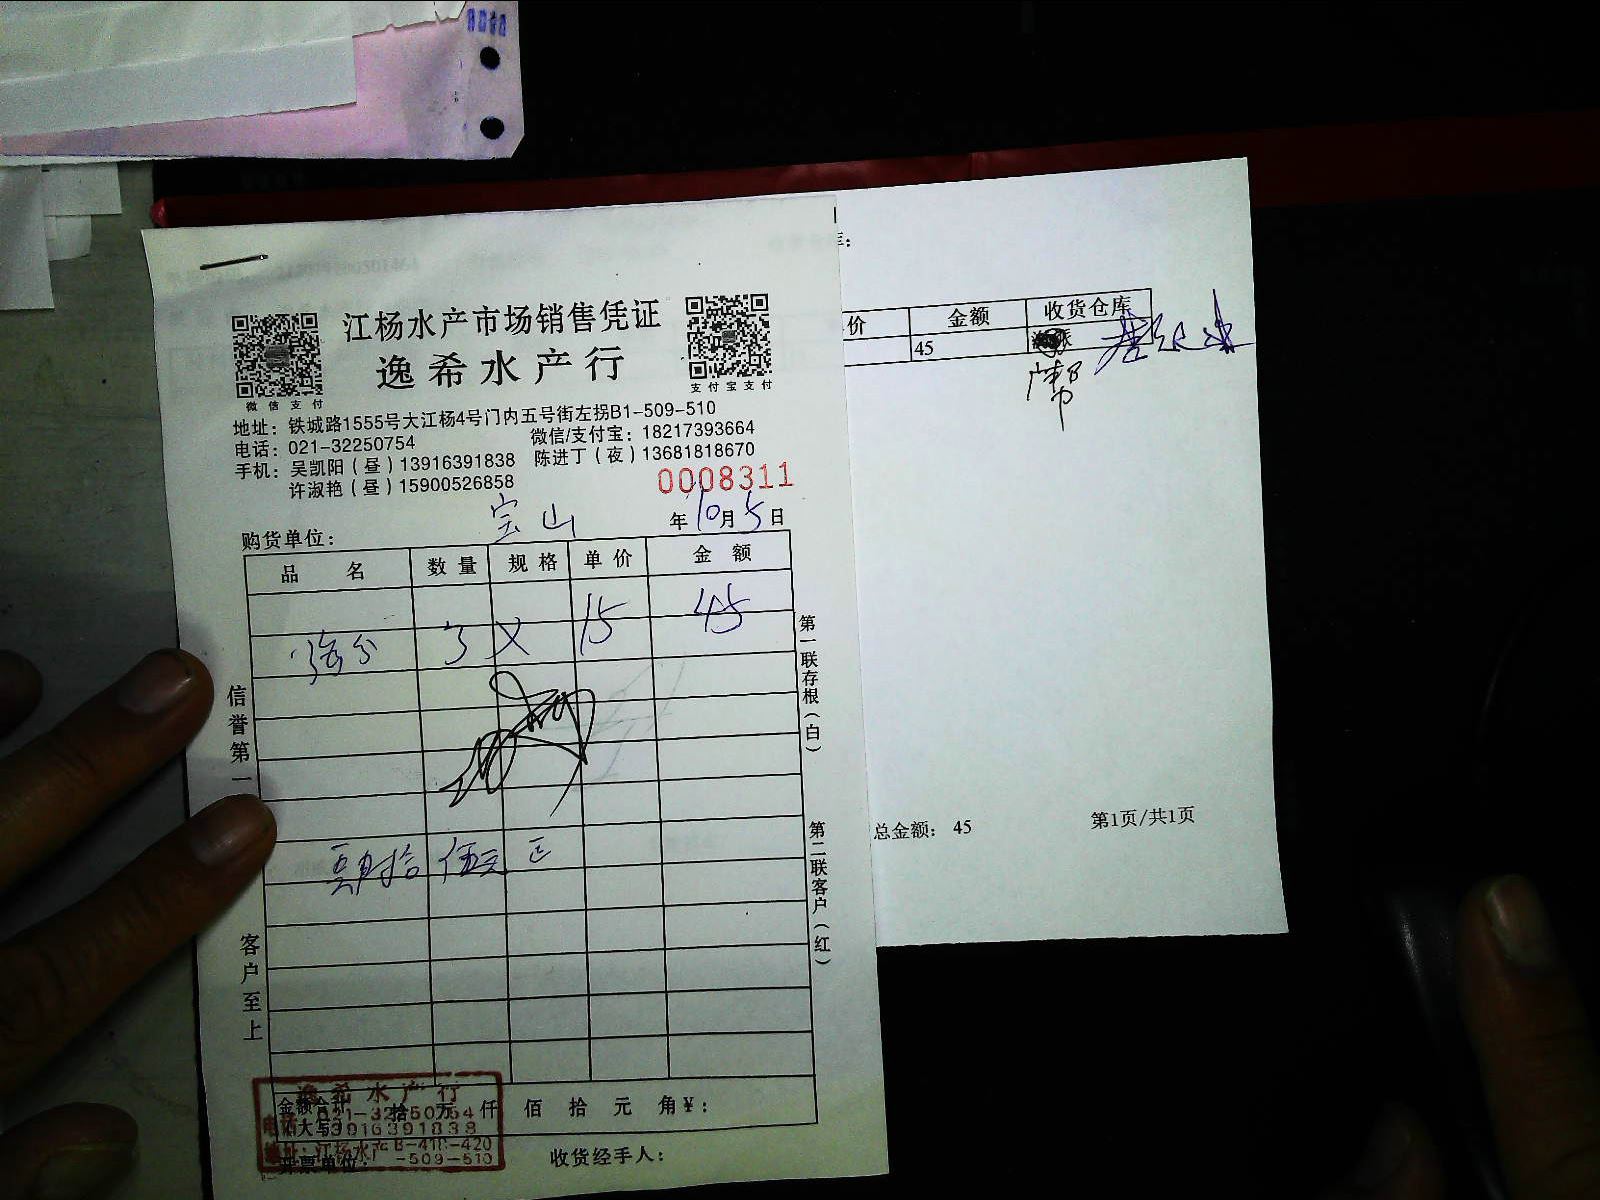 江杨水产市场销售凭证
逸希水产行
微信支付
支付宝支付
地址：铁城路1555号大江杨4号门内五号街左拐B1-509-510
电话：021-32250754 微信/支付宝：18217393664
手机：吴凯阳（昼）13916391838 陈进丁（夜）13681818670
许淑艳（昼）15900526858
0008311
购货单位： 宝山 年10月5日
品名 数量 规格 单价 金额
3 15 45
伍元正
信誉第一
客户至上
第一联存根（白）
第二联客户（红）
金额合计 拾 万 仟 佰 拾 元 角 ¥：
开票单位： 收货经手人：
逸希水产行
021-32250754
13916391838
地址：江杨水产B-418-420
-509-510
库：
价 金额 收货仓库
45
总金额： 45 第1页/共1页